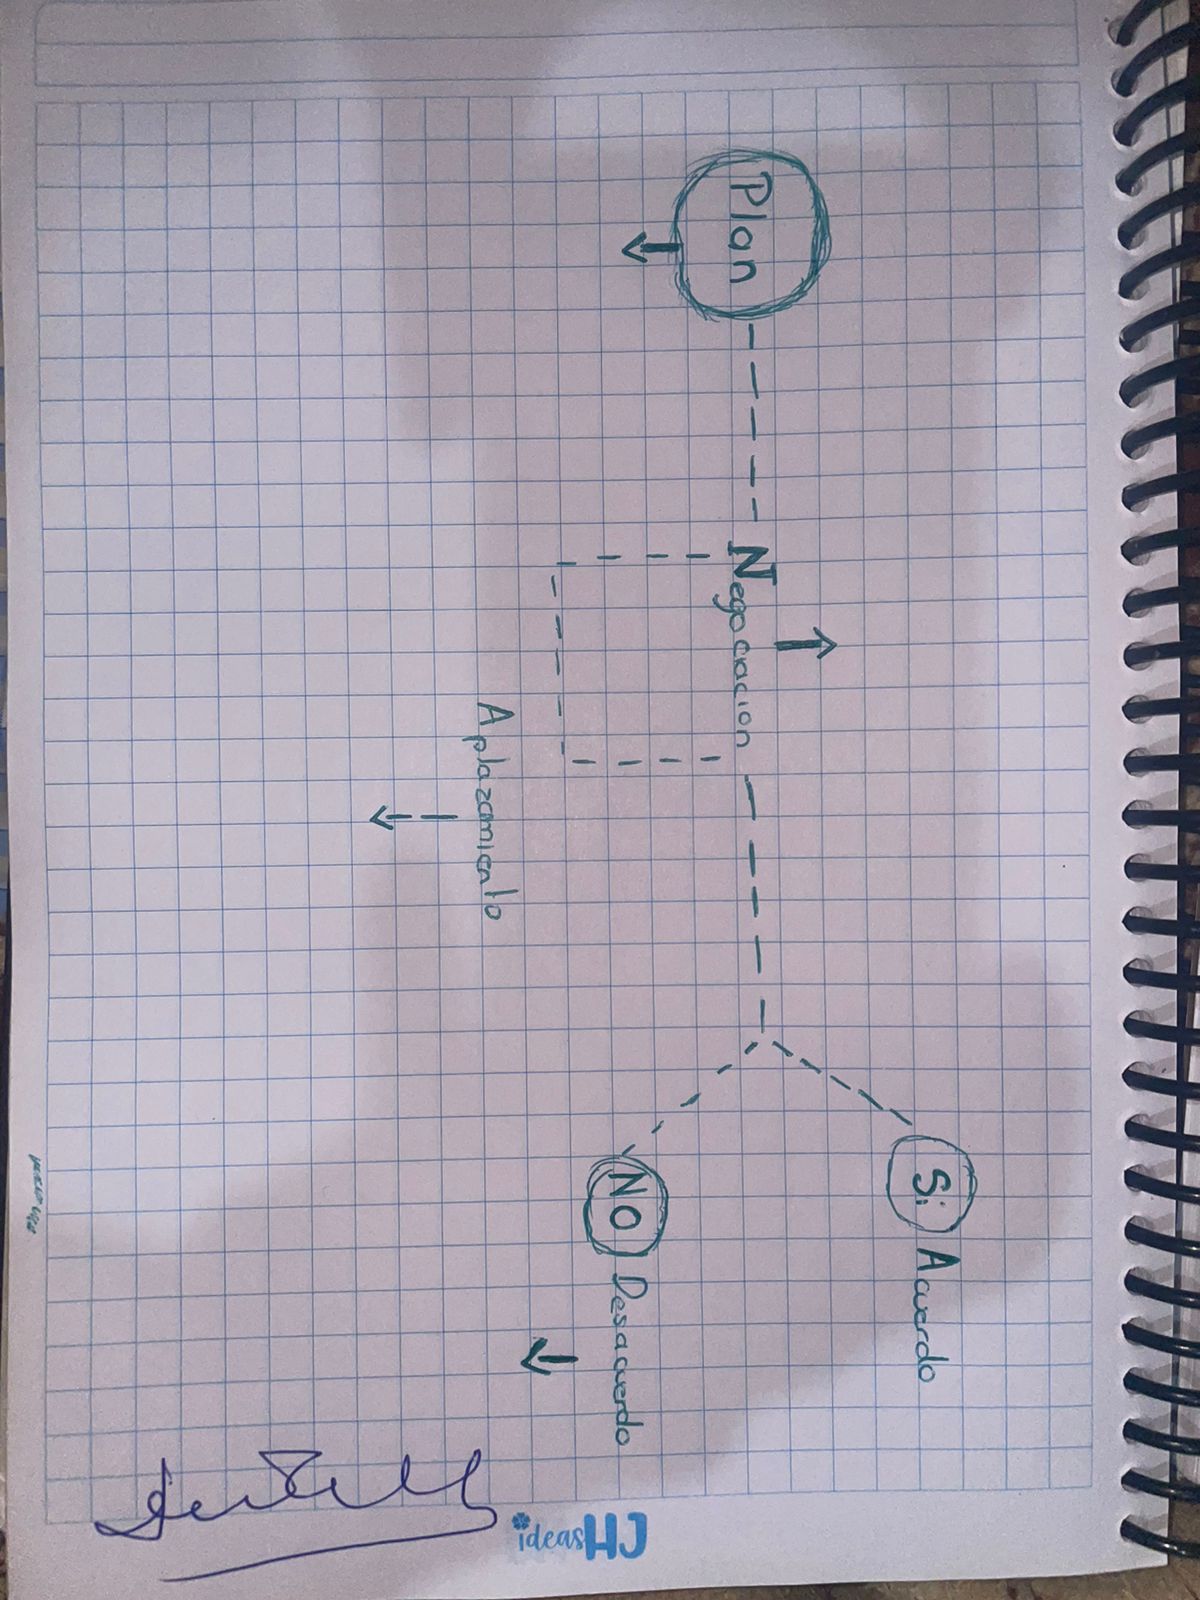 Plan
Negociacion
Aplazamiento
Si Acuerdo
NO Desacuerdo
ideasHJ